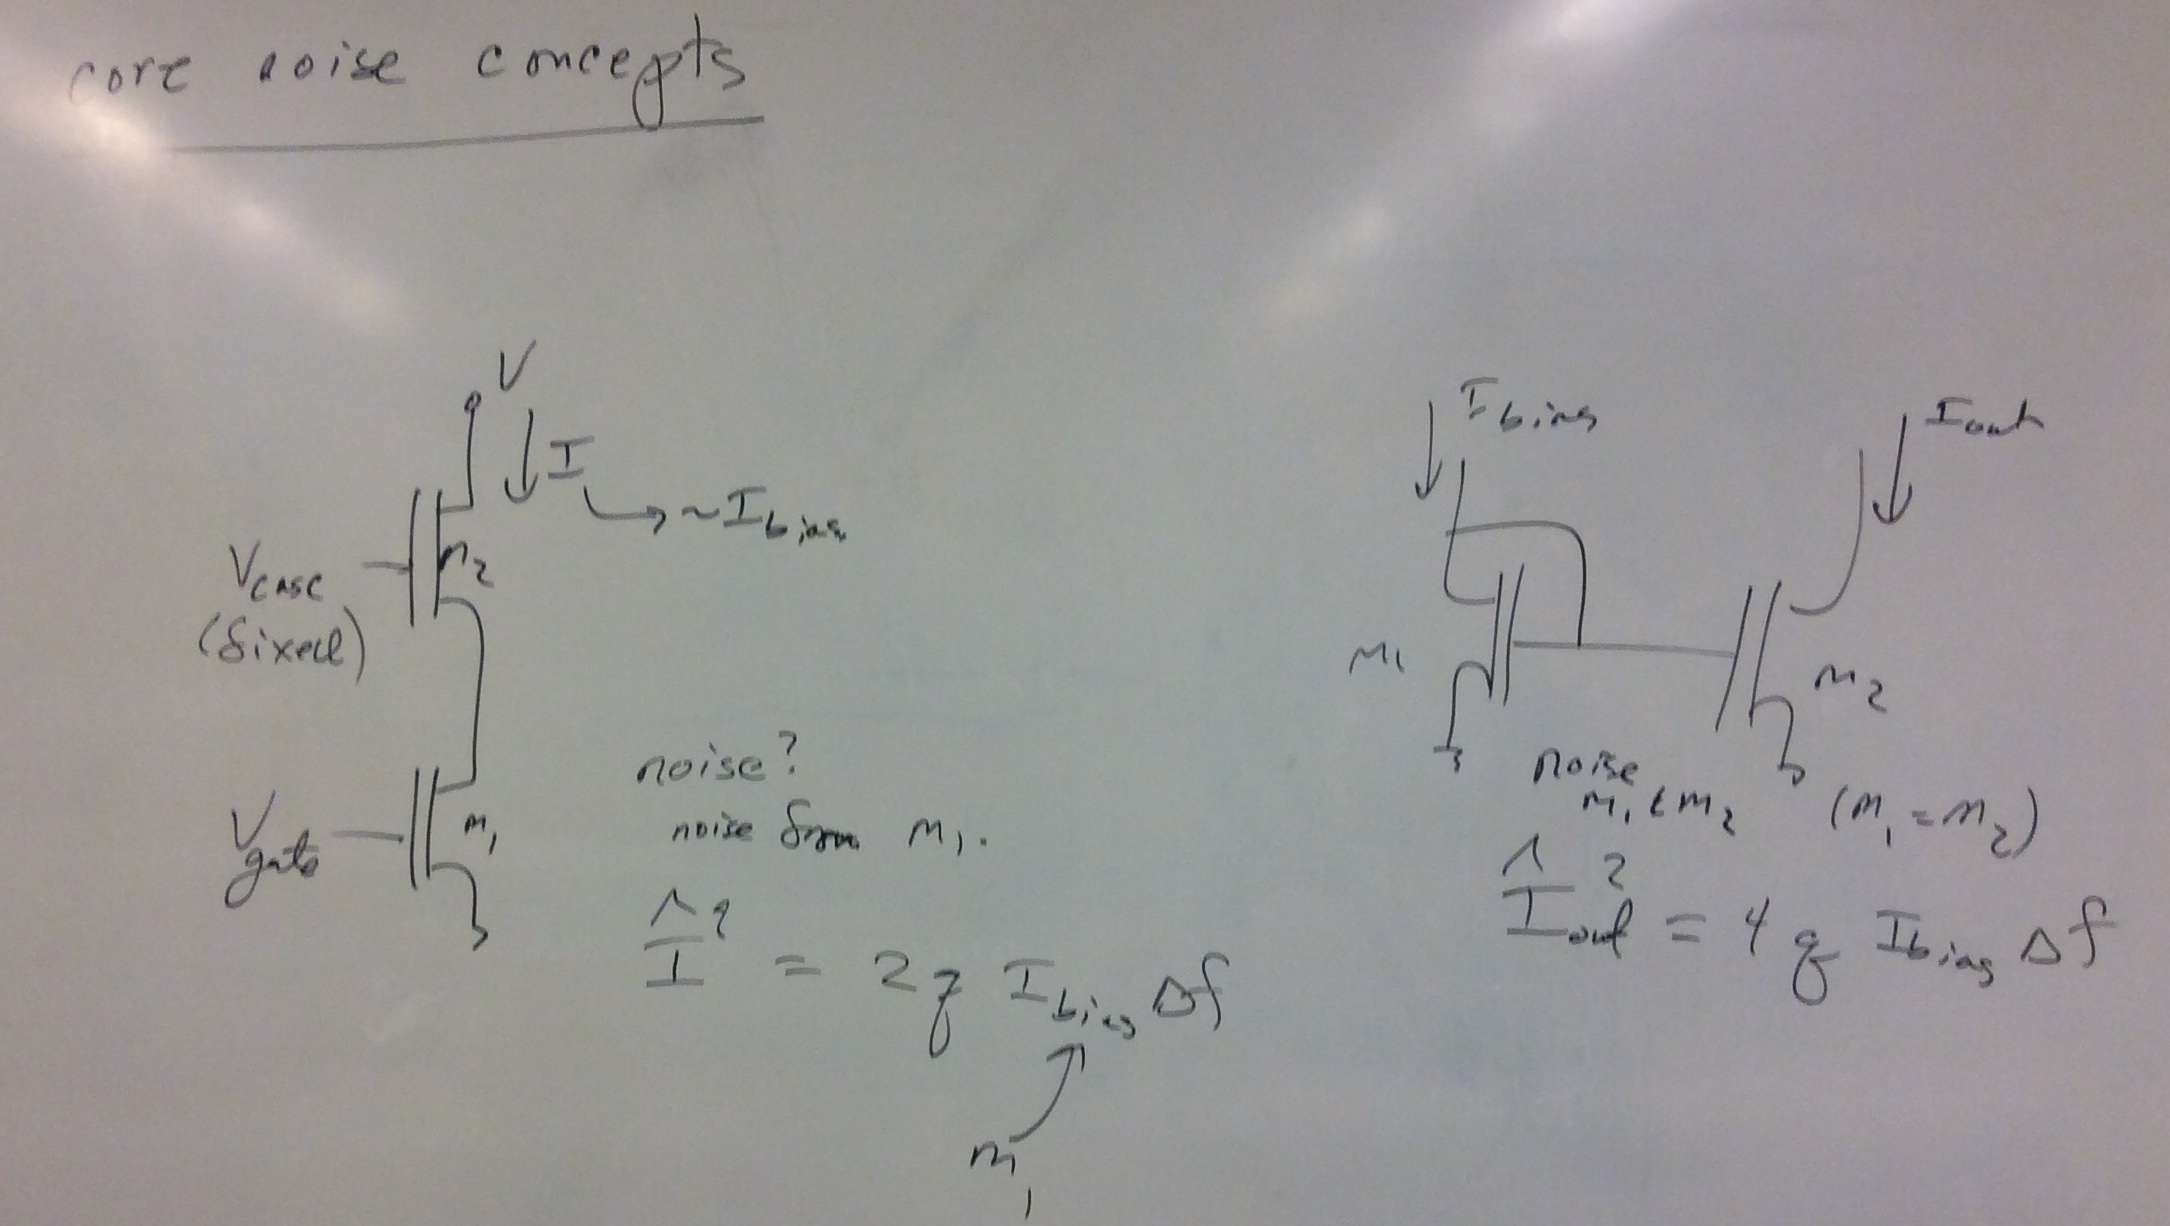 core noise concepts
V
I
~I bias
Vcasc
(fixed)
M2
Vgate
M1
noise?
noise from M1.
Î² = 2q Ibias Δf
M1
Ibias
Iout
M1
M2
noise
M1 & M2 (M1 = M2)
Îout² = 4q Ibias Δf